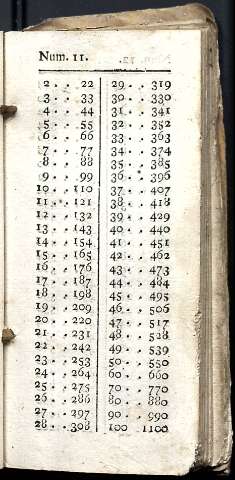 Num. 11.
2 . . 22
3 . . 33
4 . . 44
5 . . 55
6 . . 66
7 . . 77
8 . . 88
9 . . 99
10 . . 110
11 . . 121
12 . . 132
13 . . 143
14 . . 154
15 . . 165
16 . . 176
17 . . 187
18 . . 198
19 . . 209
20 . . 220
21 . . 231
22 . . 242
23 . . 253
24 . . 264
25 . . 275
26 . . 286
27 . . 297
28 . . 308
29 . . 319
30 . . 330
31 . . 341
32 . . 352
33 . . 363
34 . . 374
35 . . 385
36 . . 396
37 . . 407
38 . . 418
39 . . 429
40 . . 440
41 . . 451
42 . . 462
43 . . 473
44 . . 484
45 . . 495
46 . . 506
47 . . 517
48 . . 528
49 . . 539
50 . . 550
60 . . 660
70 . . 770
80 . . 880
90 . . 990
100 . . 1100